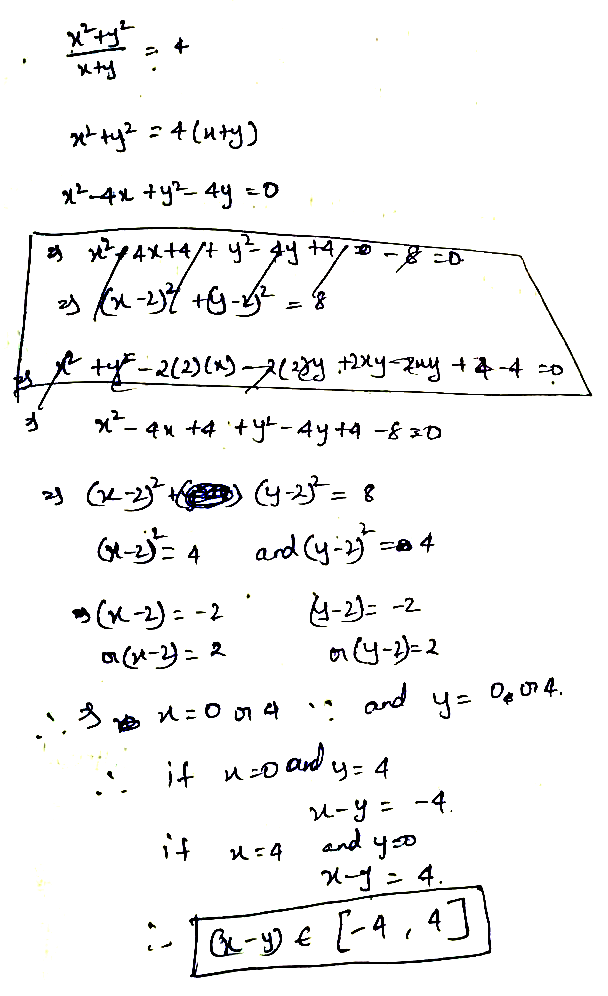 x²+y² / x+y = 4
x²+y² = 4(x+y)
x²-4x+y²-4y=0
⇒ x²-4x+4+y²-4y+4-8=0
⇒ (x-2)²+(y-2)²=8
⇒ x²+y²-2(2)(x)-2(2)y+2xy-2xy+4-4=0
⇒ x²-4x+4+y²-4y+4-8=0
⇒ (x-2)²+(y-2)²=8
(x-2)²=4 and (y-2)²=4
⇒(x-2)=-2 (y-2)=-2
or (x-2)=2 or (y-2)=2
∴ ⇒ x=0 or 4 and y=0 or 4.
∴ if x=0 and y=4
x-y=-4.
if x=4 and y=0
x-y=4.
∴ (x-y) ∈ [-4, 4]